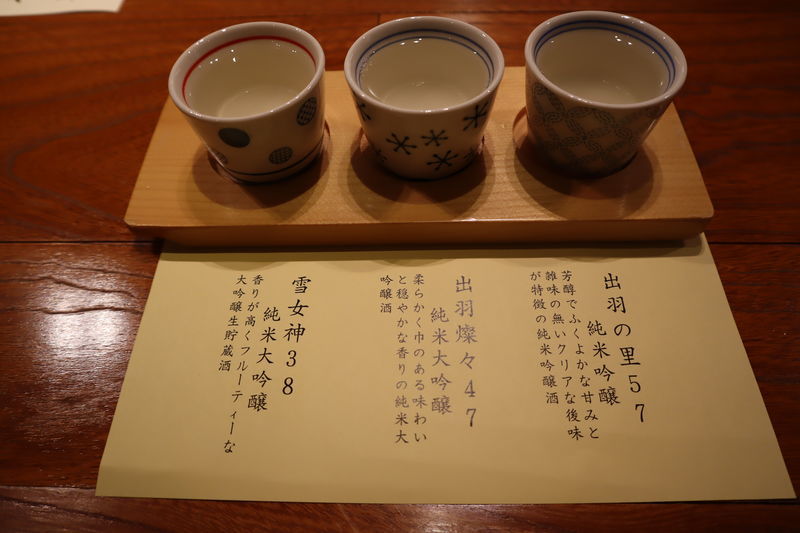 出羽の里57
純米吟醸
芳醇でふくよかな甘みと
雑味の無いクリアな後味
が特徴の純米吟醸酒
出羽燦々47
純米大吟醸
柔らかく巾のある味わい
と穏やかな香りの純米大
吟醸酒
雪女神38
純米大吟醸
香りが高くフルーティーな
大吟醸生貯蔵酒